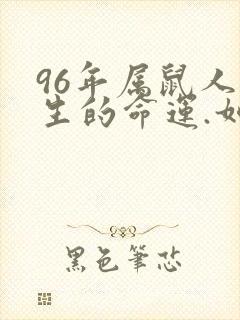 96年属鼠人
生的命运.如
黑色筆芯